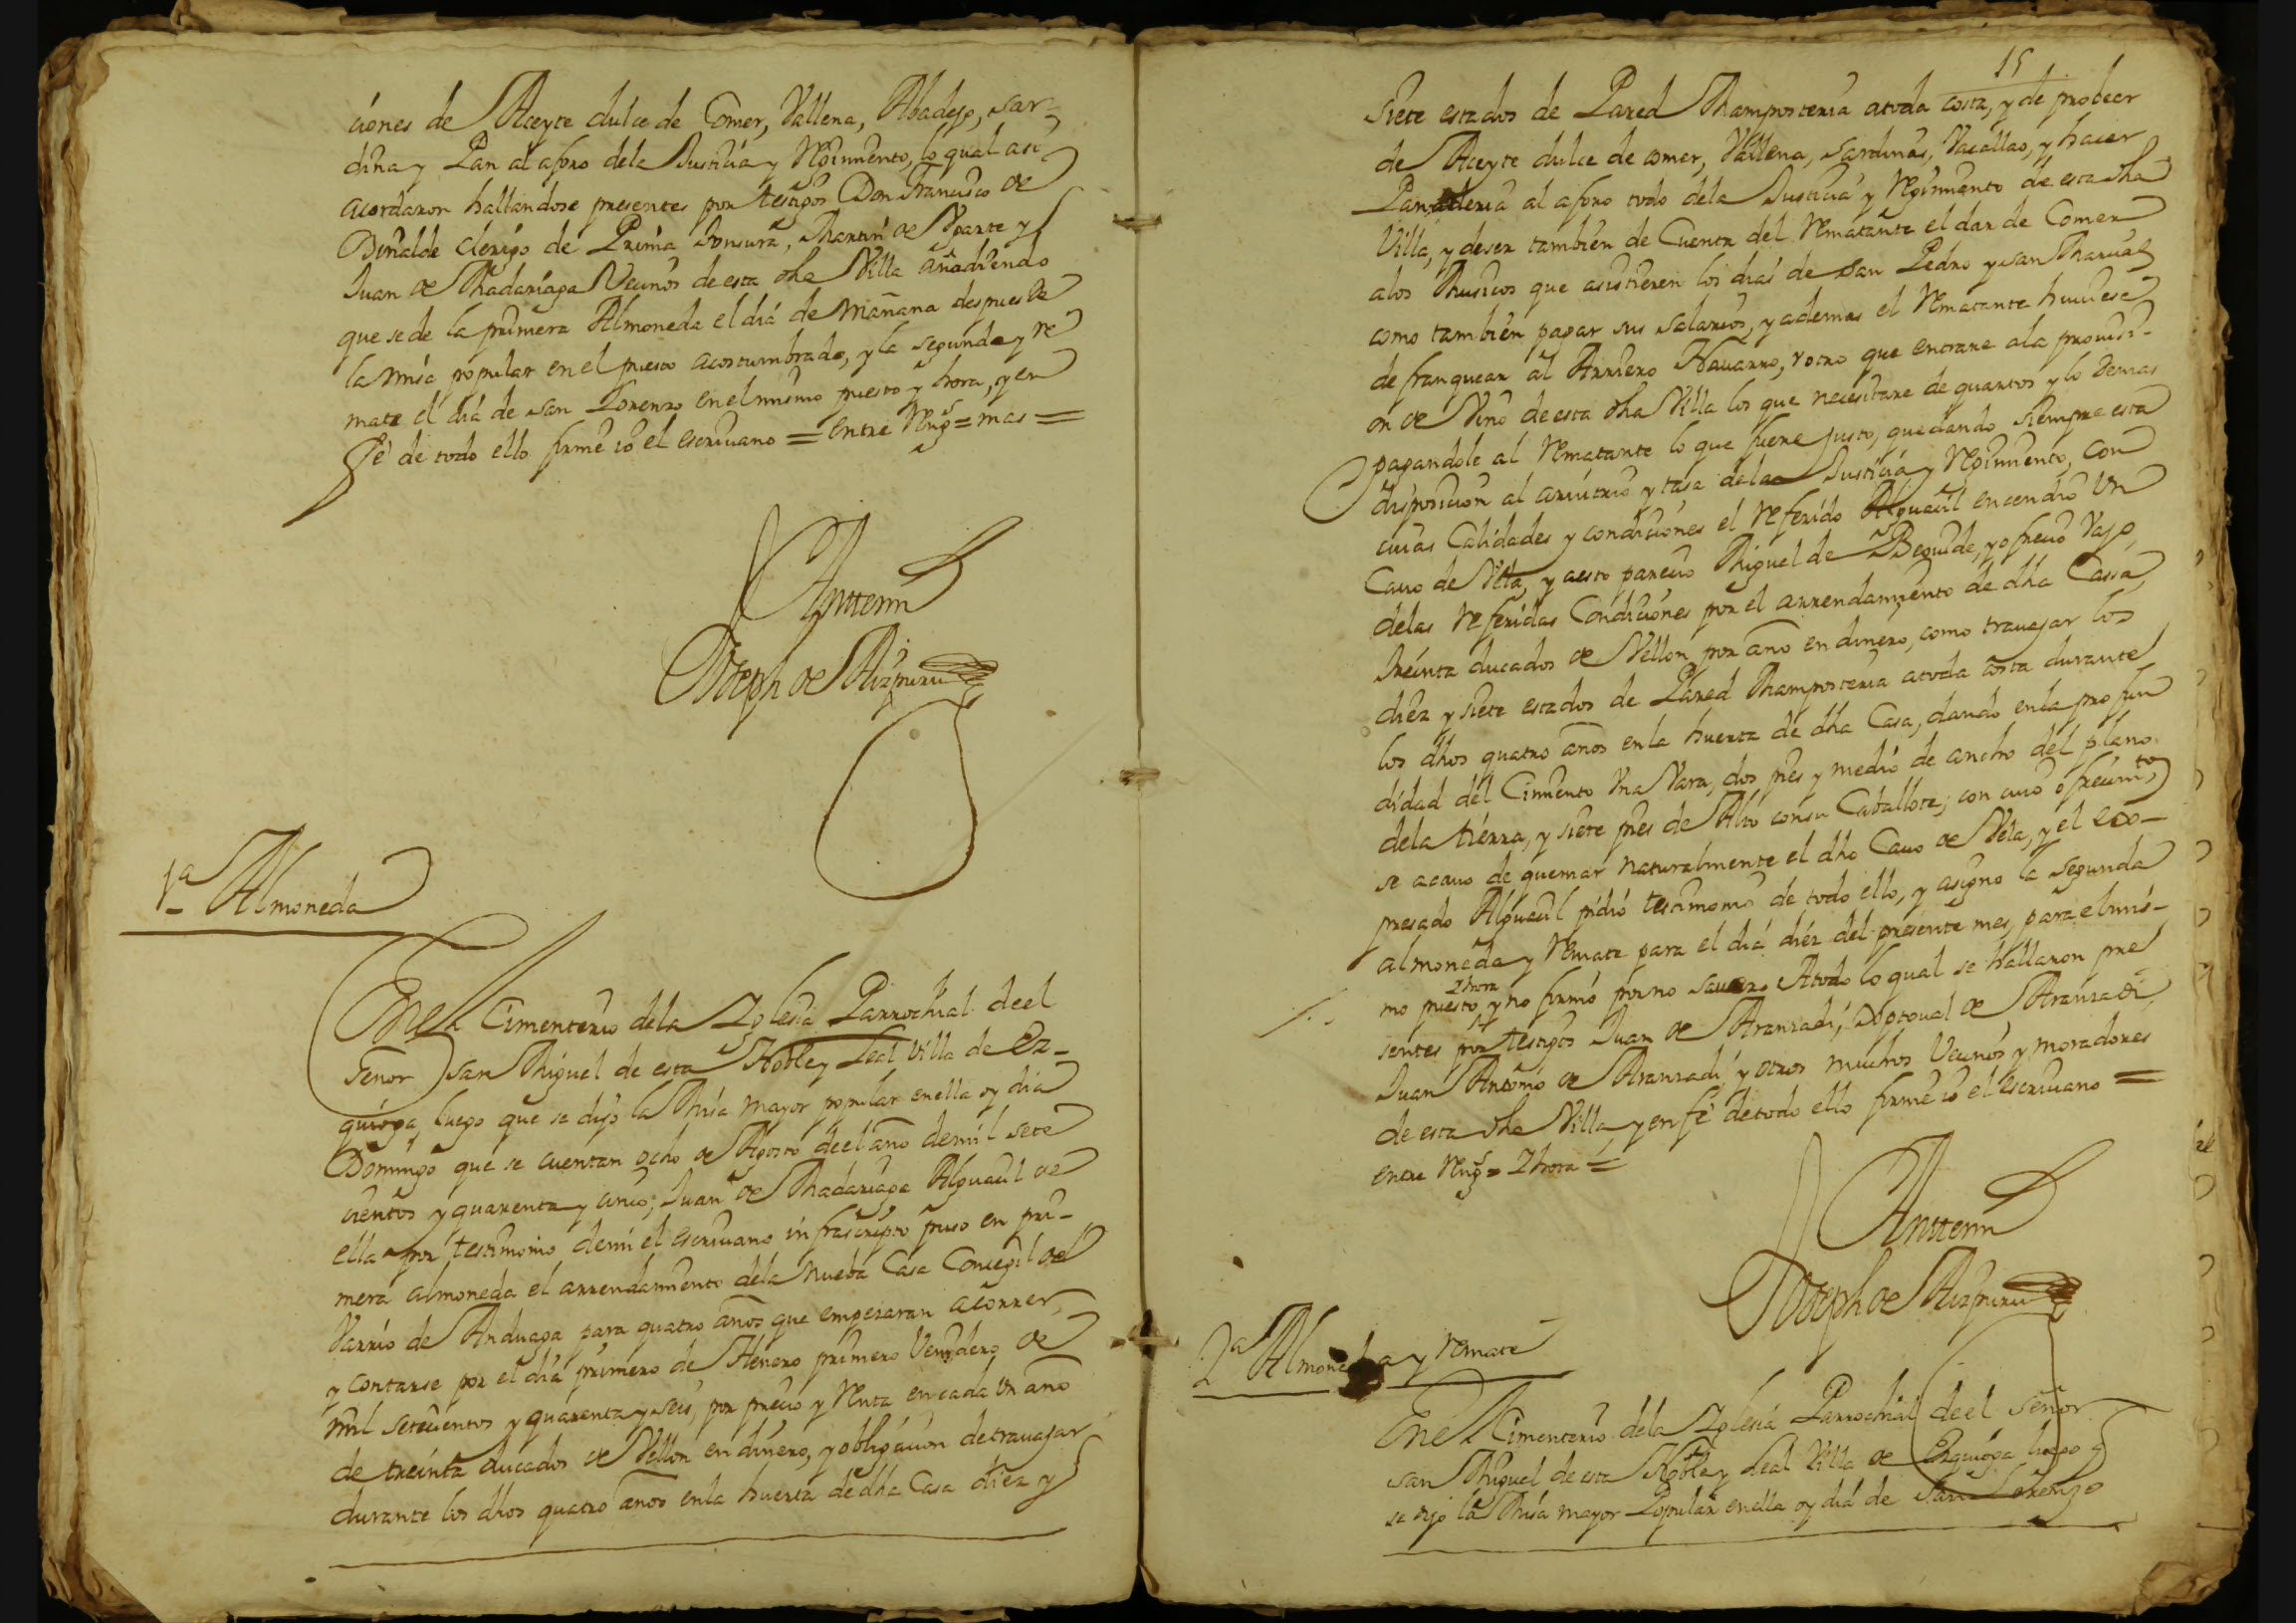 ciones de Aceyte dulce de Comer, Vallena, Abadejo, sar-
dina y Pan al aforo dela Justicia y Regimiento, lo qual asi
acordaron hallandose presentes por testigos Don Francisco de
clerigo de Prima tonsura, Martin de Ugarte y
Juan de Madariaga Vecinos de esta dha Villa añadiendo
que se de la primera Almoneda el dia de mañana despues de
la misa popular en el puesto acostumbrado, y la segunda y re
mate el dia de san Lorenzo en el mismo puesto y hora, y en
fe de todo ello firmé io el escriuano = entre Rengs = mas =
Anttemi
Joseph de Aizpuru
1ª Almoneda
En el Cimenterio dela Iglesia Parrochial de el
señor san Miguel de esta Noble y Leal Villa de Ez-
quioga luego que se dijo la Misa mayor popular en ella oy dia
Domingo que se cuentan ocho de Agosto de el año de mil sete
cientos y quarenta y cinco; Juan de Madariaga Alguacil de
ella por testimonio de mi el escriuano infrascripto puso en pri-
mera almoneda el arrendamiento dela nueba Casa Concegil de el
Varrio de Anduaga para quatro años que empezaran acorrer,
y contarse por el dia primero de Henero primero Venidero de
mil setecientos y quarenta y seis, por precio y Renta en cada un año
de treinta ducados de Vellon en dinero, y obligacion de trauajar
durante los dhos quatro años en la huerta de dha Casa diez y
15
siete estados de Pared Mamposteria atoda costa, y de probeer
de Aceyte dulce de comer, Vallena, sardinas, Vacallao, y hacer
Panaderia al aforo todo dela Justicia y Regimiento de esta dha
Villa, y de ser tambien de Cuenta del Rematante el dar de Comer
alos Musicos que asistieren los dias de san Pedro y san Marcial
como tambien pagar sus salarios, y ademas el Rematante huuiese
de franquear al Arriero Navarro, v otro que entrare ala prouisi-
on de Vino de esta dha Villa los que necesitare de quartos y lo demas
pagandole al Rematante lo que fuere justo, quedando siempre esta
disposicion al arvitrio y tasa dela Justicia y Regimiento, con
cuias Calidades y condiciones el referido Alguacil encendio un
Cauo de Vela, y aesto parecio Miguel de Beguide, y ofrecio Vajo
delas referidas Condiciones por el arrendamiento de dha Cassa,
treinta ducados de Vellon por año en dinero, como trauajar los
diez y siete estados de Pared Mamposteria atoda costa durante
los dhos quatro años en la huerta de dha Casa, dando en la profun
didad del Cimiento Una Vara, dos pies y medio de ancho del plano
dela tierra, y siete pies de Alto con su Caballote; con cuio ofrecimto
se acauo de quemar naturalmente el dho Cauo de Vela, y el ex-
presado Alguacil pidió testimonio de todo ello, y asigno la segunda
almoneda y Remate para el dia diez del presente mes, para el mis-
mo puesto, y hora y no firmó por no sauer Atodo lo qual se hallaron pre
sentes por testigos Juan de Aranzadi, de Aranzadi,
Juan Antonio de Aranzadi y otros muchos Vecinos y moradores
de esta dha Villa y en fe de todo ello firmé io el escriuano =
entre Rengs = y hora =
Anttemi
Joseph de Aizpuru
2ª Almoneda y remate
En el Cimenterio dela Iglesia Parrochial de el señor
san Miguel de esta Noble y Leal Villa de Ezquioga luego q
se dijo la Misa mayor Popular en ella oy dia de San Lorenzo